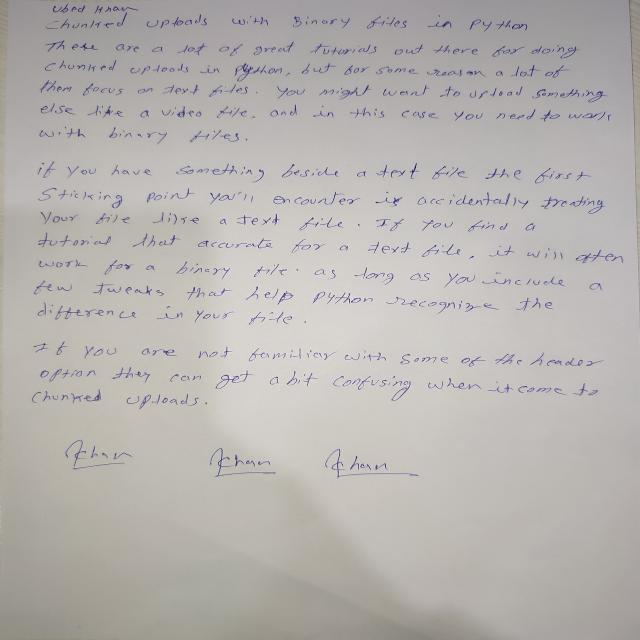 Ubed Khan
Chunked uploads with Binary files in Python
There are a lot of great tutorials out there for doing
chunked uploads in Python, but for some reason a lot of
them focus on text files. You might want to upload something
else like a video file, and in this case you need to work
with binary files.
if you have something beside a text file the first
Sticking point you'll encounter is accidentally treating
Your file like a text file. If you find a
tutorial that accurate for a text file, it will often
work for a binary file. as long as you include a
few tweaks that help python recognize the
difference in your file.
If you are not familiar with some of the header
option they can get a bit confusing when it come to
Chunked uploads.
Khan Khan Khan